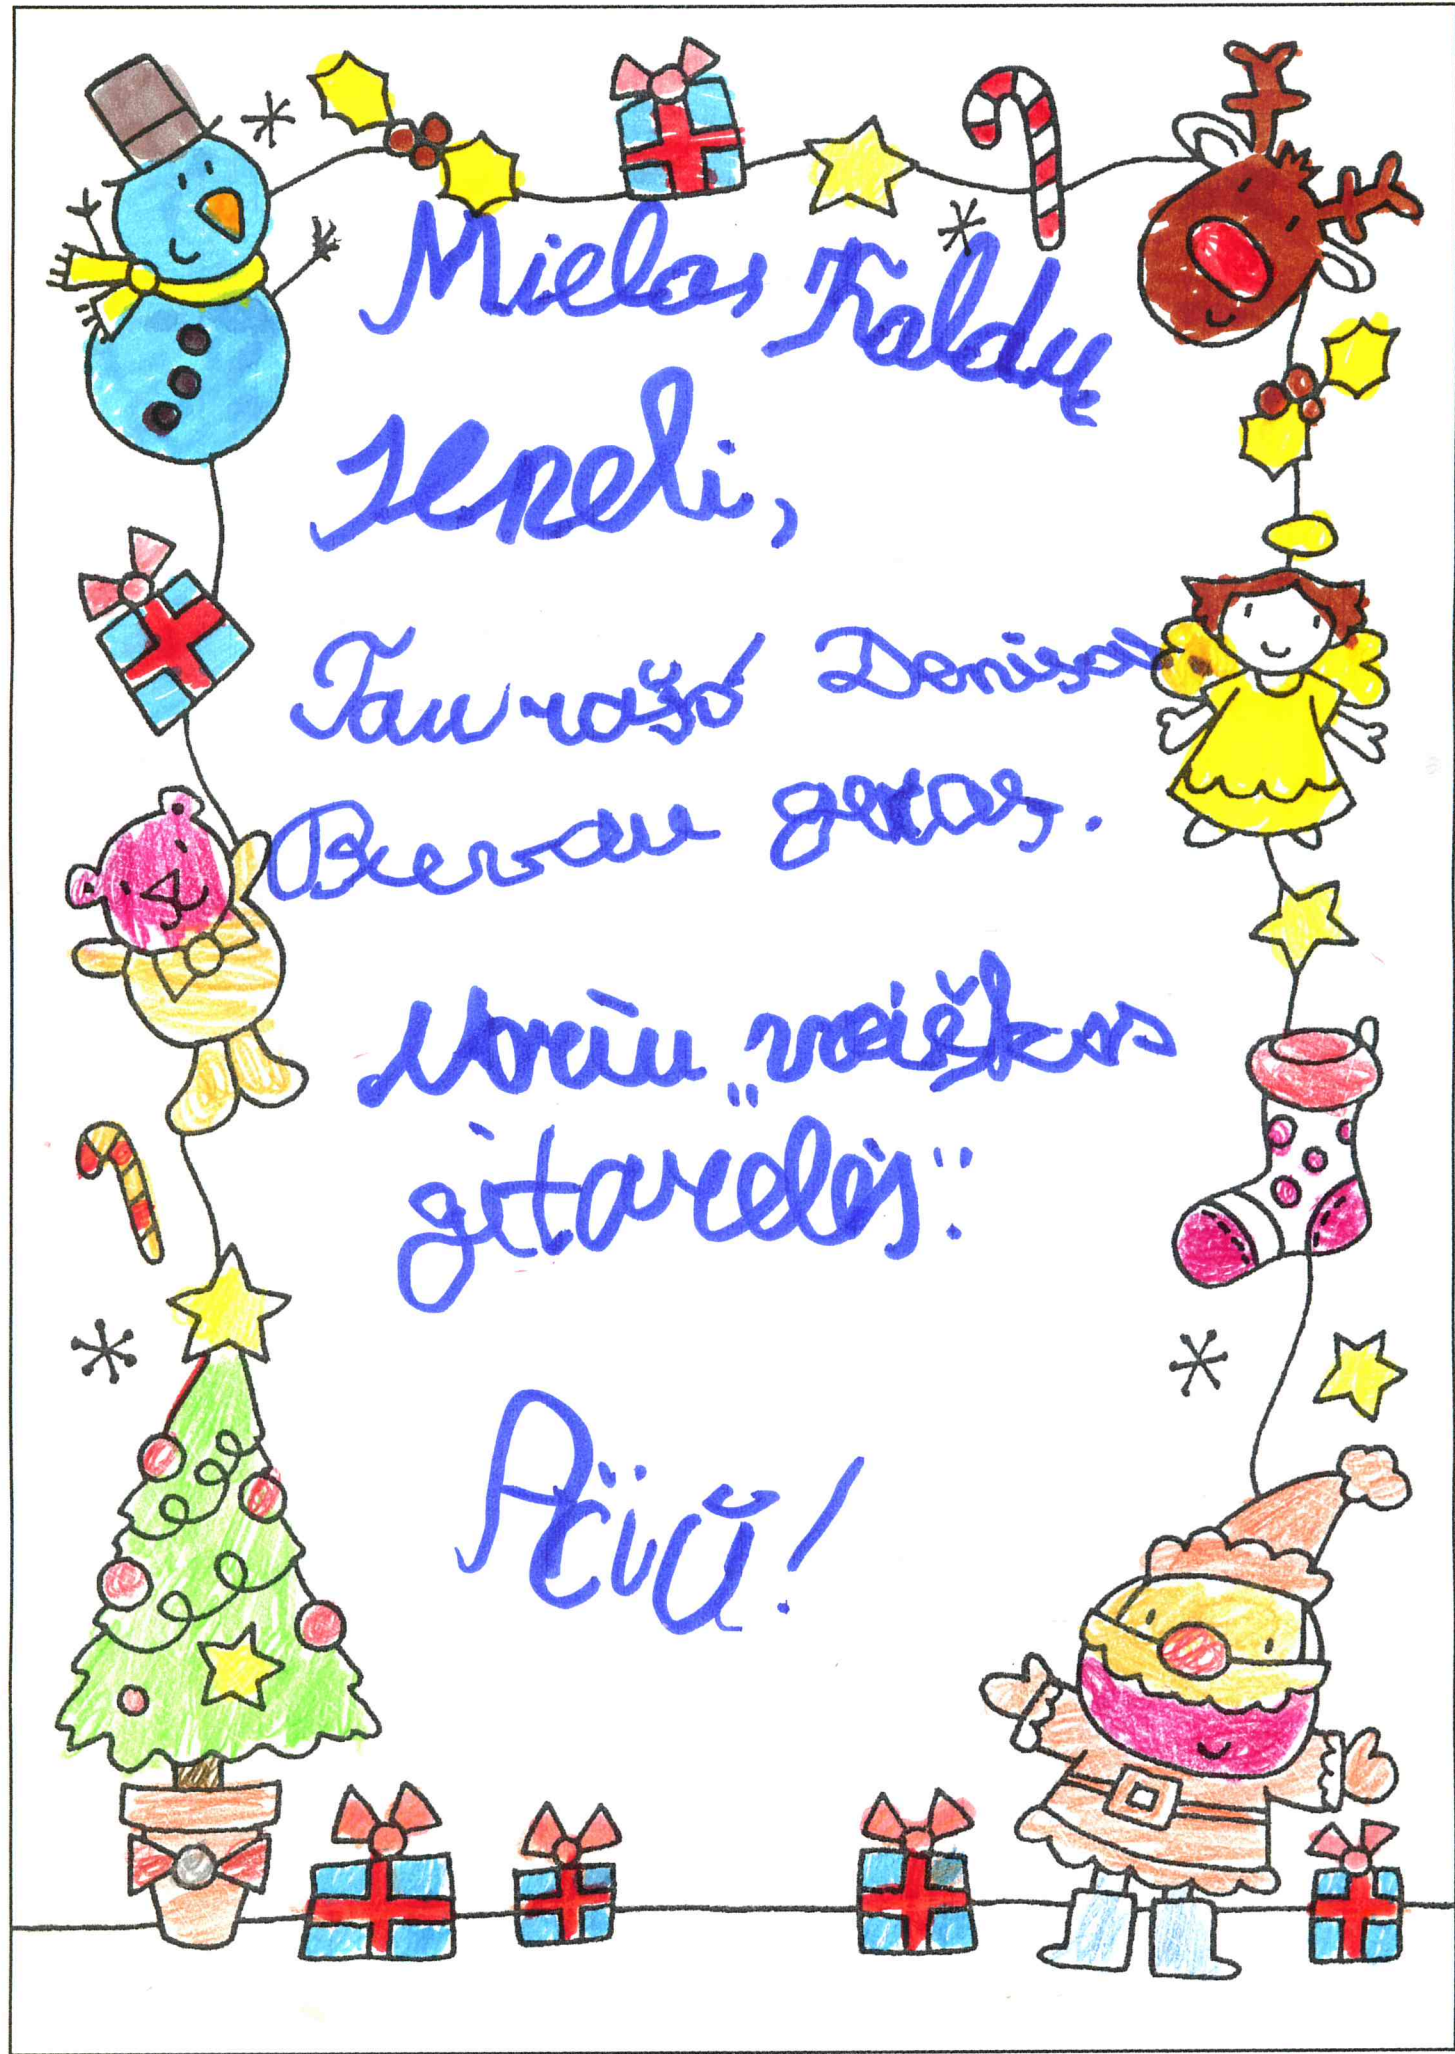 Mielas Kaldų
seneli,
Tau rašo Denisas
Buvau geras.
Noriu „vaiškos
gitarelės".
Ačiū!